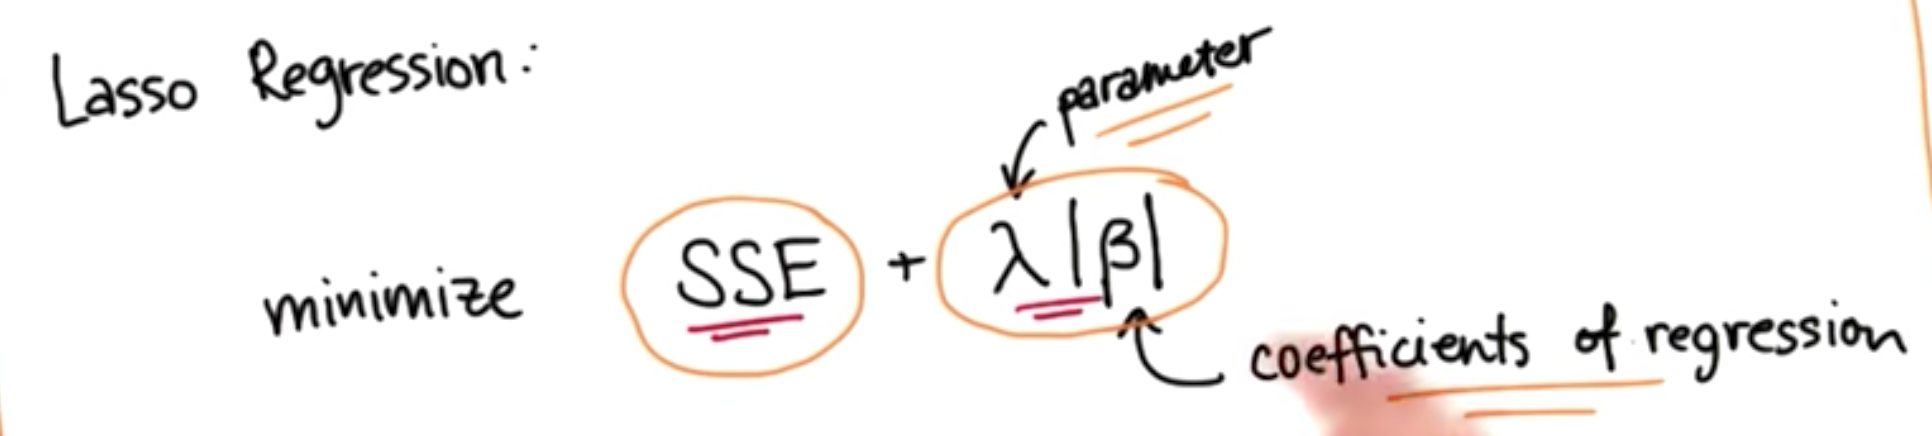 Lasso Regression:
parameter
minimize SSE + λ|β|
coefficients of regression